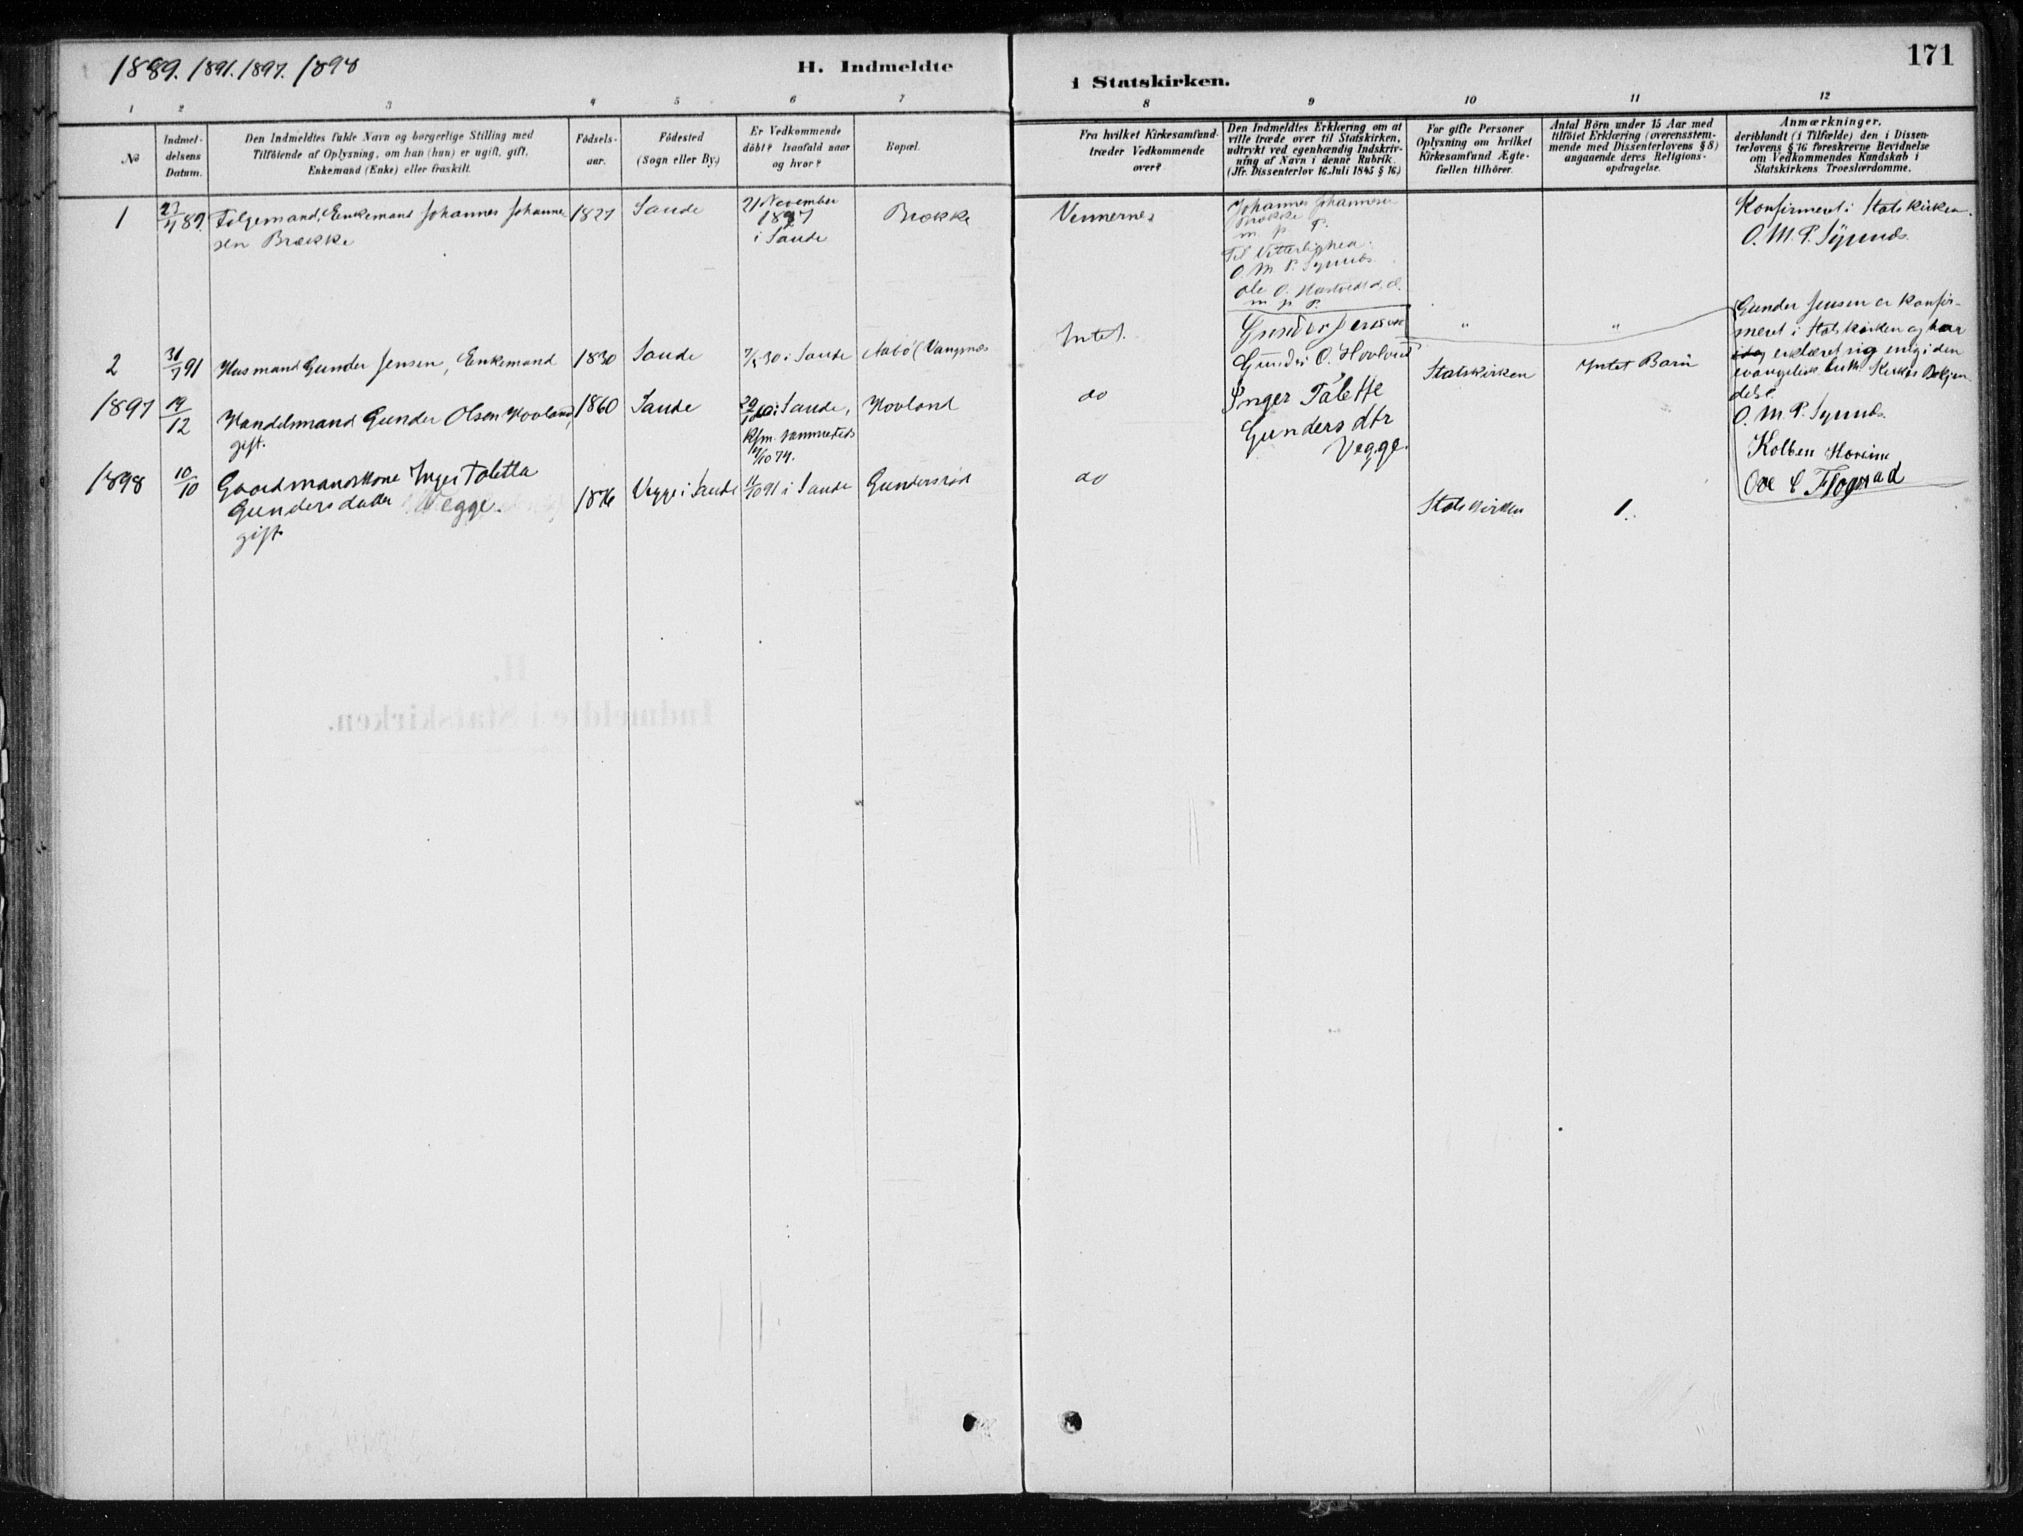 1889. 1891. 1897. 1898
H. Indmeldte
i Statskirken.
171
1 2 3 4 5 6 7 8 9 10 11 12
No
Indmel-
delsens
Datum.
Den Indmeldtes fulde Navn og borgerlige Stilling med
Tilföiende af Oplysning, om han (hun) er ugift, gift,
Enkemand (Enke) eller fraskilt.
Födsels-
aar.
Födested
(Sogn eller By.)
Er Vedkommende
döbt? Isaafald naar
og hvor?
Bopæl.
Fra hvilket Kirkesamfund
træder Vedkommende
over?
Den Indmeldtes Erklæring om at
ville træde over til Statskirken,
udtrykt ved egenhændig Indskriv-
ning af Navn i denne Rubrik.
(Jfr. Dissenterlov 16. Juli 1845 § 16.)
For gifte Personer
Oplysning om hvilket
Kirkesamfund Ægte-
fællen tilhörer.
Antal Börn under 15 Aar med
tilföiet Erklæring (overensstem-
mende med Dissenterlovens § 8)
angaaende deres Religions-
opdragelse.
Anmærkninger,
deriblandt (i Tilfælde) den i Dissen-
terlovens § 16 foreskrevne Bevidnelse
om Vedkommendes Kundskab i
Statskirkens Troeslærdomme.
1
Folgemand, Enkemand Johannes Johanne
sen Brække
1827
Sande
21 November
1827
i Sande
Brække
Vennernes
Johannes Johannesen
Brække
m. p. P.
Til Vitterlighed.
O. M. P. Synnds
m p P.
Konfirmeret i Statskirken.
O. M. P. Synnds.
2
31/7 91
Husmand Gunder Jensen, Enkemand
1830
Sande
7/5 30 i Sande
Aabö (Vangnæs
Intet.
Gunder Jensen
" "
Gunder Jensen er konfir-
meret i Statskirken og har
erklæret sig enig i den
evangelisk luth. Kirkes Bekjen-
delse.
O. M. P. Synnds.
1897
19/12
Handelsmand Gunder Olsen Hovland,
gift.
1860
Sande
i Sande,
Kfm. sammesteds
74.
Hovland
do
Gunder O. Hovland
Statskirken
Intet Barn
Kolben
1898
10/10
Gaardmandskone Inger Toletta
Gundersdatter Vegge.
gift
1876
Vegge i Sande
91 i Sande
Gundersröd
do
Inger Tålette
Gunders dtr
Vegge.
Statskirken
1.